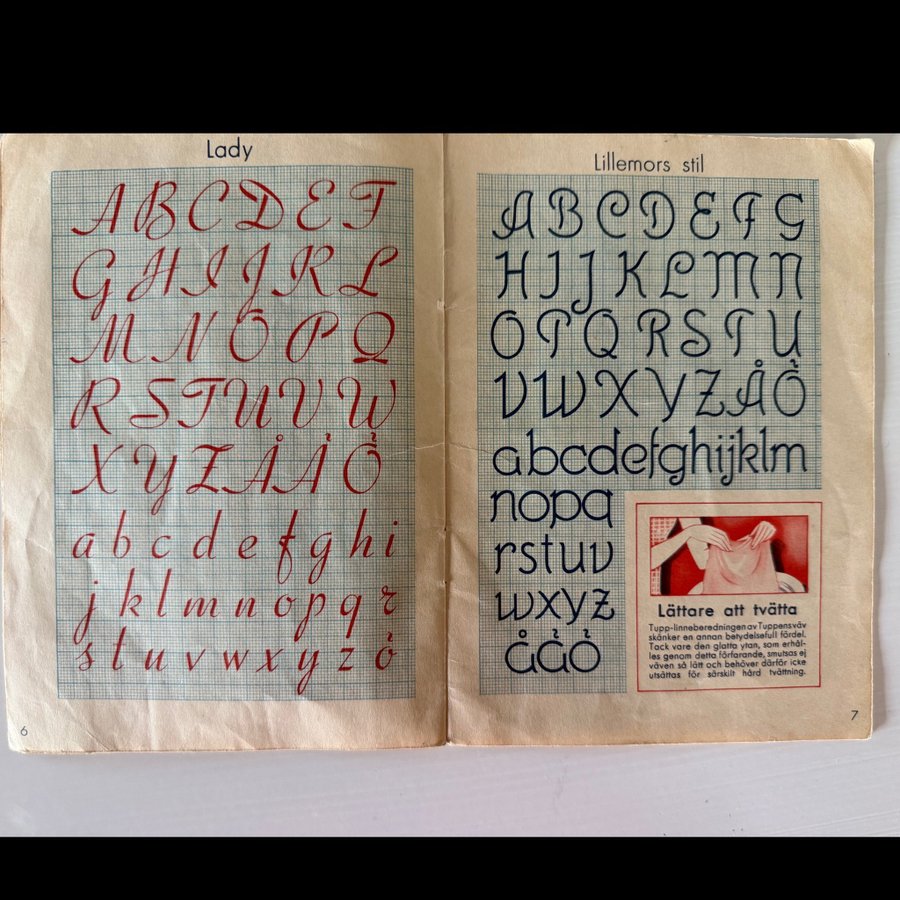 Lady
A B C D E F
G H I J K L
M N O P Q
R S T U V W
X Y Z Å Ä Ö
a b c d e f g h i
j k l m n o p q r
s t u v w x y z ö
6
Lillemors stil
A B C D E F G
H I J K L M N
O P Q R S T U
V W X Y Z Å Ö
a b c d e f g h i j k l m
n o p q
r s t u v
w x y z
å ä ö
Lättare att tvätta
Tupp-linneberedningen av Tuppens väv
skänker en annan betydelsefull fördel.
Tack vare den glatta ytan, som erhål-
les genom detta förfarande, smutsas ej
väven så lätt och behöver därför icke
utsättas för särskilt hård tvättning.
7